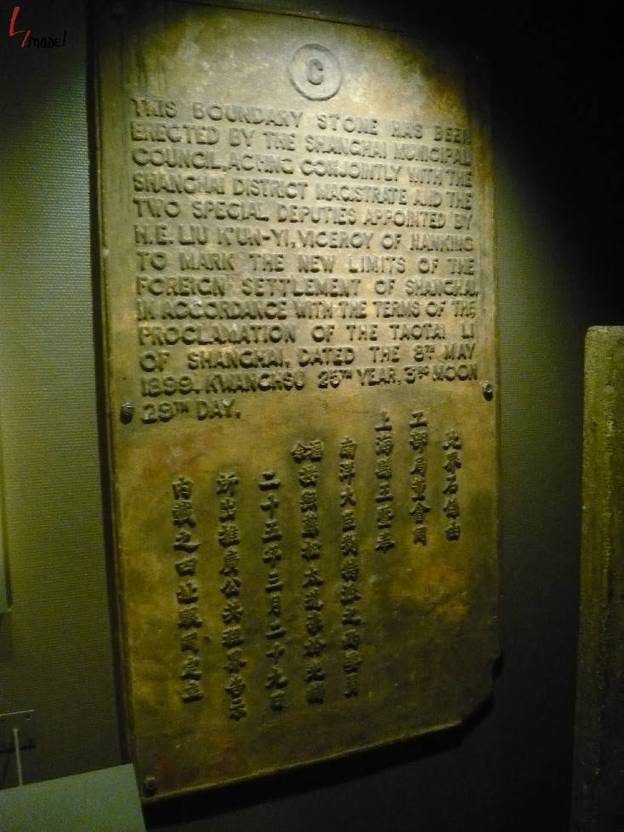 MODEL
C
THIS BOUNDARY STONE HAS BEEN
ERECTED BY THE SHANGHAI MUNICIPAL
COUNCIL, ACTING CONJOINTLY WITH THE
SHANGHAI DISTRICT MAGISTRATE AND THE
TWO SPECIAL DEPUTIES APPOINTED BY
H.E. LIU K'UN-YI, VICEROY OF NANKING
TO MARK THE NEW LIMITS OF THE
FOREIGN SETTLEMENT OF SHANGHAI,
IN ACCORDANCE WITH THE TERMS OF THE
PROCLAMATION OF THE TAOTAI LI
OF SHANGHAI, DATED THE 8TH MAY
1899. KWANGHSU 25TH YEAR, 3RD MOON
29TH DAY.
此界石係由
工部局董會同
上海縣王暨奉
南洋大臣劉特派之
二十五年三月二十九日
所出推廣公共租界告示
內載之四址